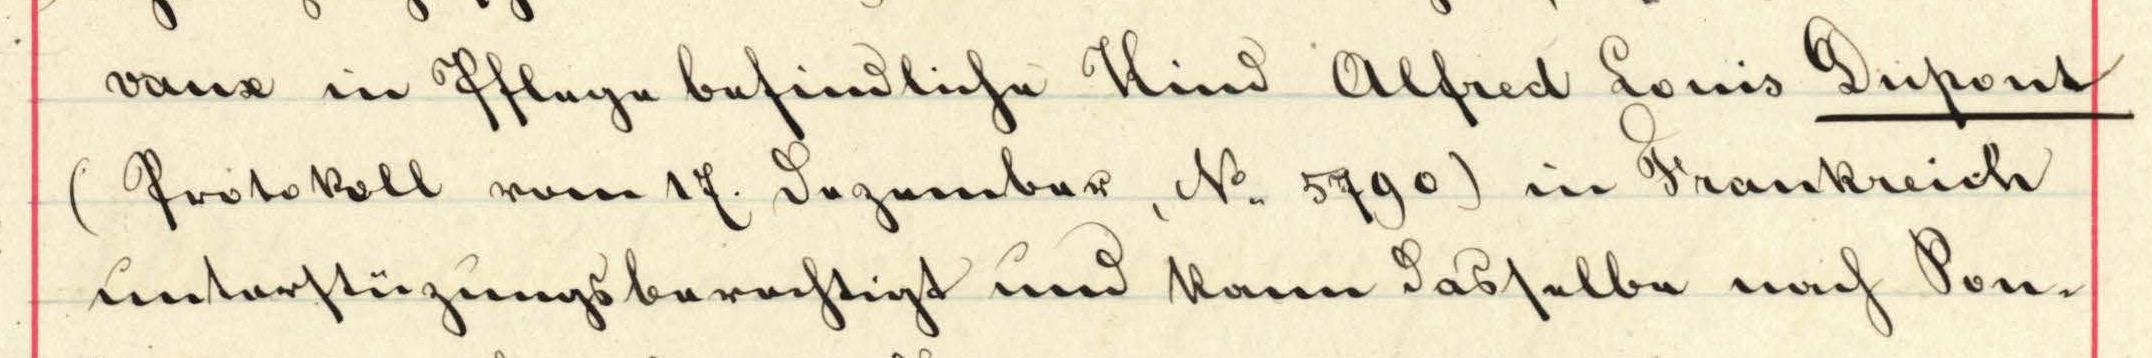 vaux in Pflege befindliche Kind Alfred Louis Dupont
(Protokoll vom 17. Dezember, No. 5790) in Frankreich
unterstüzungsberechtigt und kann dasselbe nach Pon-